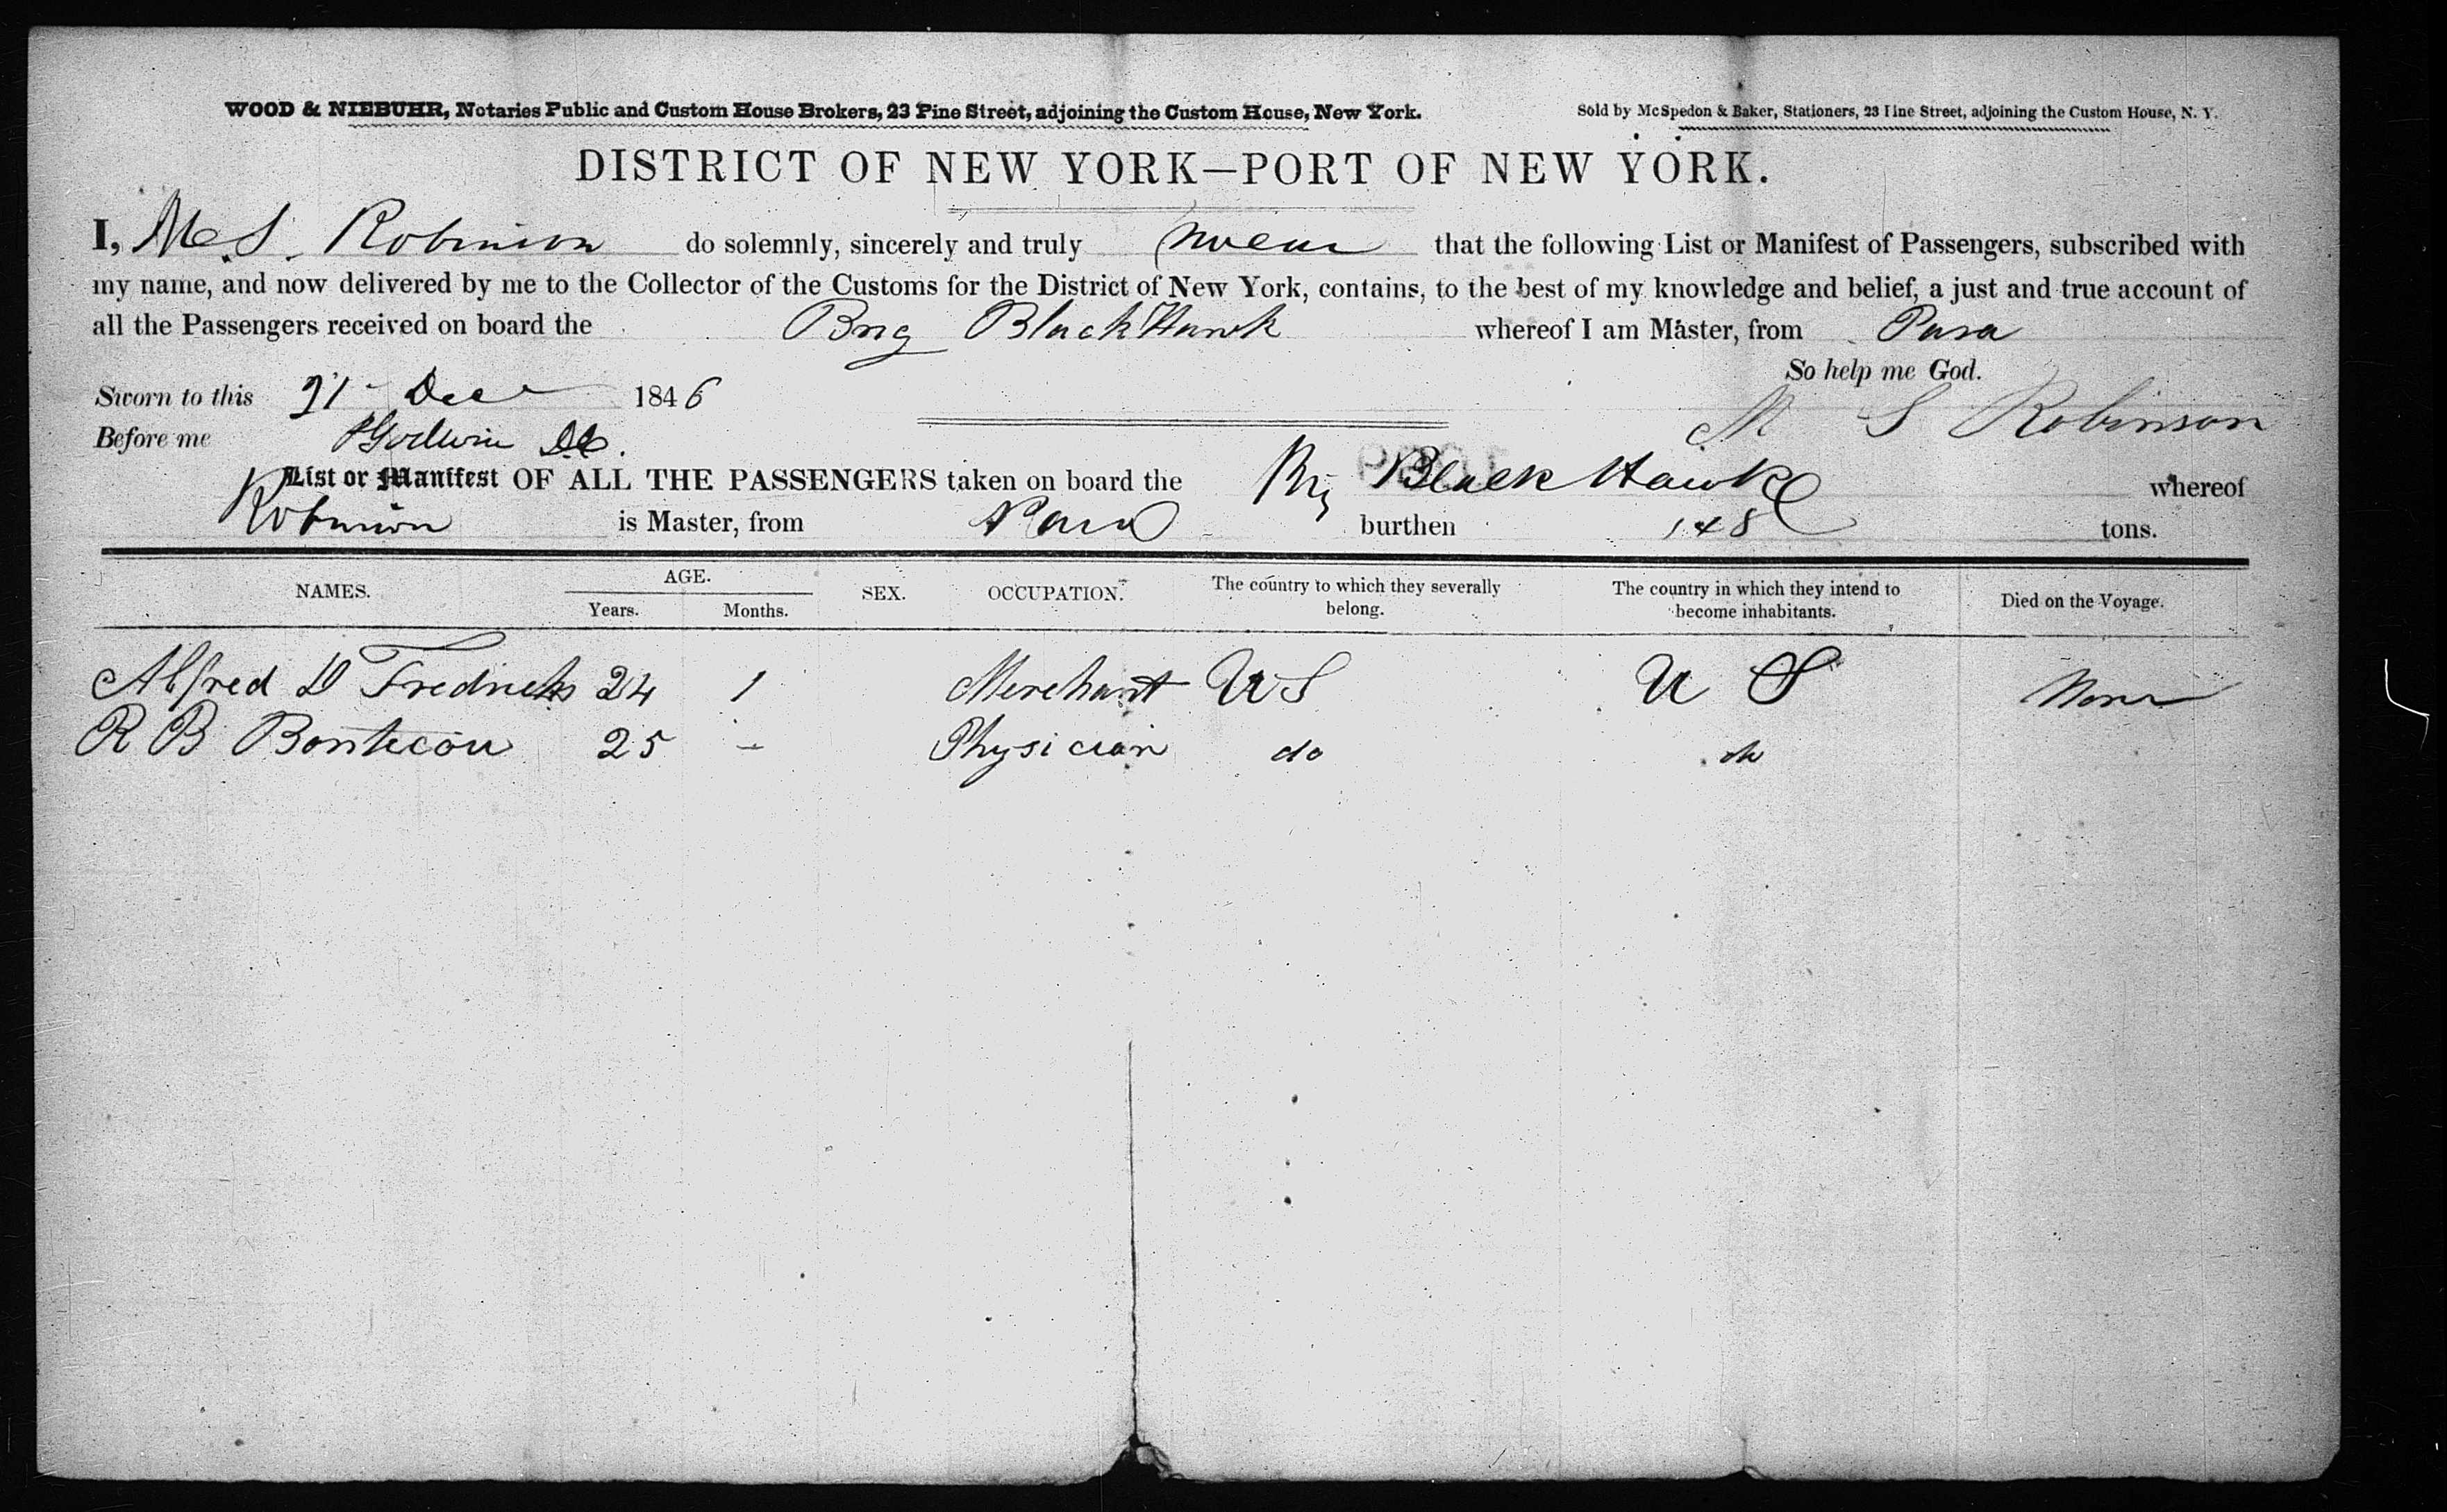 WOOD & NIEBUHR, Notaries Public and Custom House Brokers, 23 Pine Street, adjoining the Custom House, New York. Sold by McSpedon & Baker, Stationers, 23 Pine Street, adjoining the Custom House, N. Y.
DISTRICT OF NEW YORK—PORT OF NEW YORK.
I, M. S. Robinson do solemnly, sincerely and truly swear that the following List or Manifest of Passengers, subscribed with
my name, and now delivered by me to the Collector of the Customs for the District of New York, contains, to the best of my knowledge and belief, a just and true account of
all the Passengers received on board the Brig Black Hawk whereof I am Master, from Para
So help me God.
Sworn to this 21 Dec 1846
M S Robinson
Before me Godwin DC.
List or Manifest OF ALL THE PASSENGERS taken on board the Brig Black Hawk whereof
Robinson is Master, from Para burthen 148 tons.
NAMES. AGE. Years. Months. SEX. OCCUPATION. The country to which they severally belong. The country in which they intend to become inhabitants. Died on the Voyage.
Alfred D Fredricks 24 1 Merchant U S U S None
R B Bontecou 25 - Physician do do